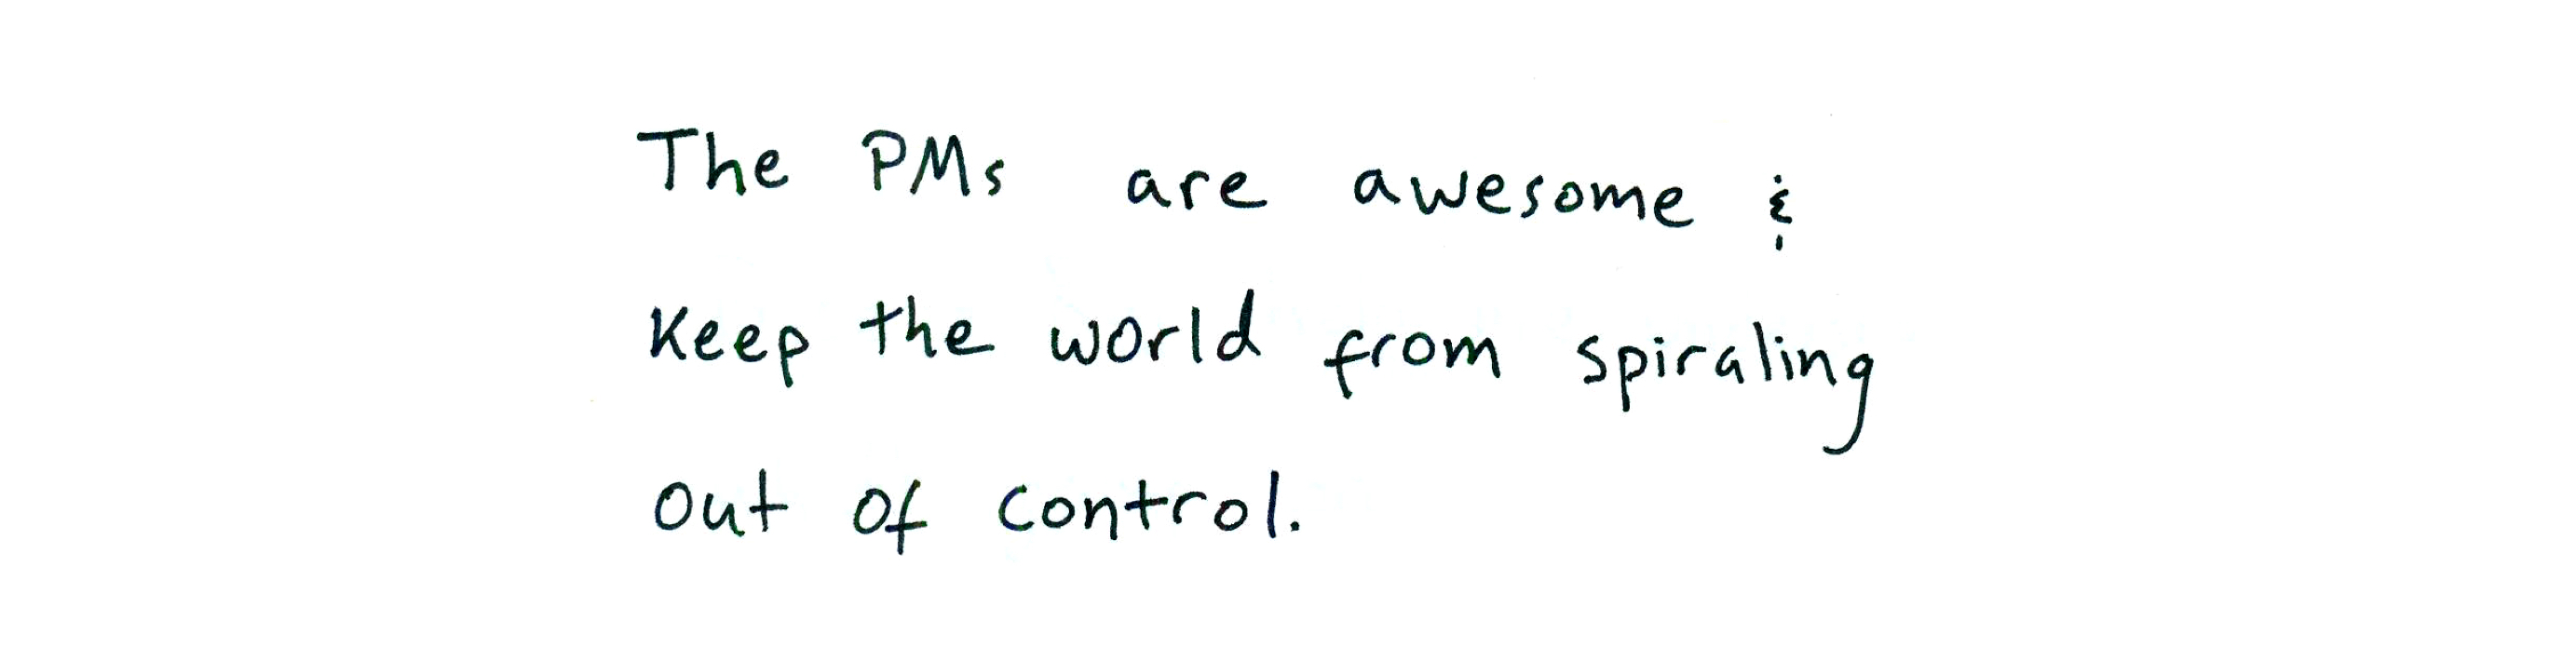 The PMs are awesome &
keep the world from spiraling
out of control.